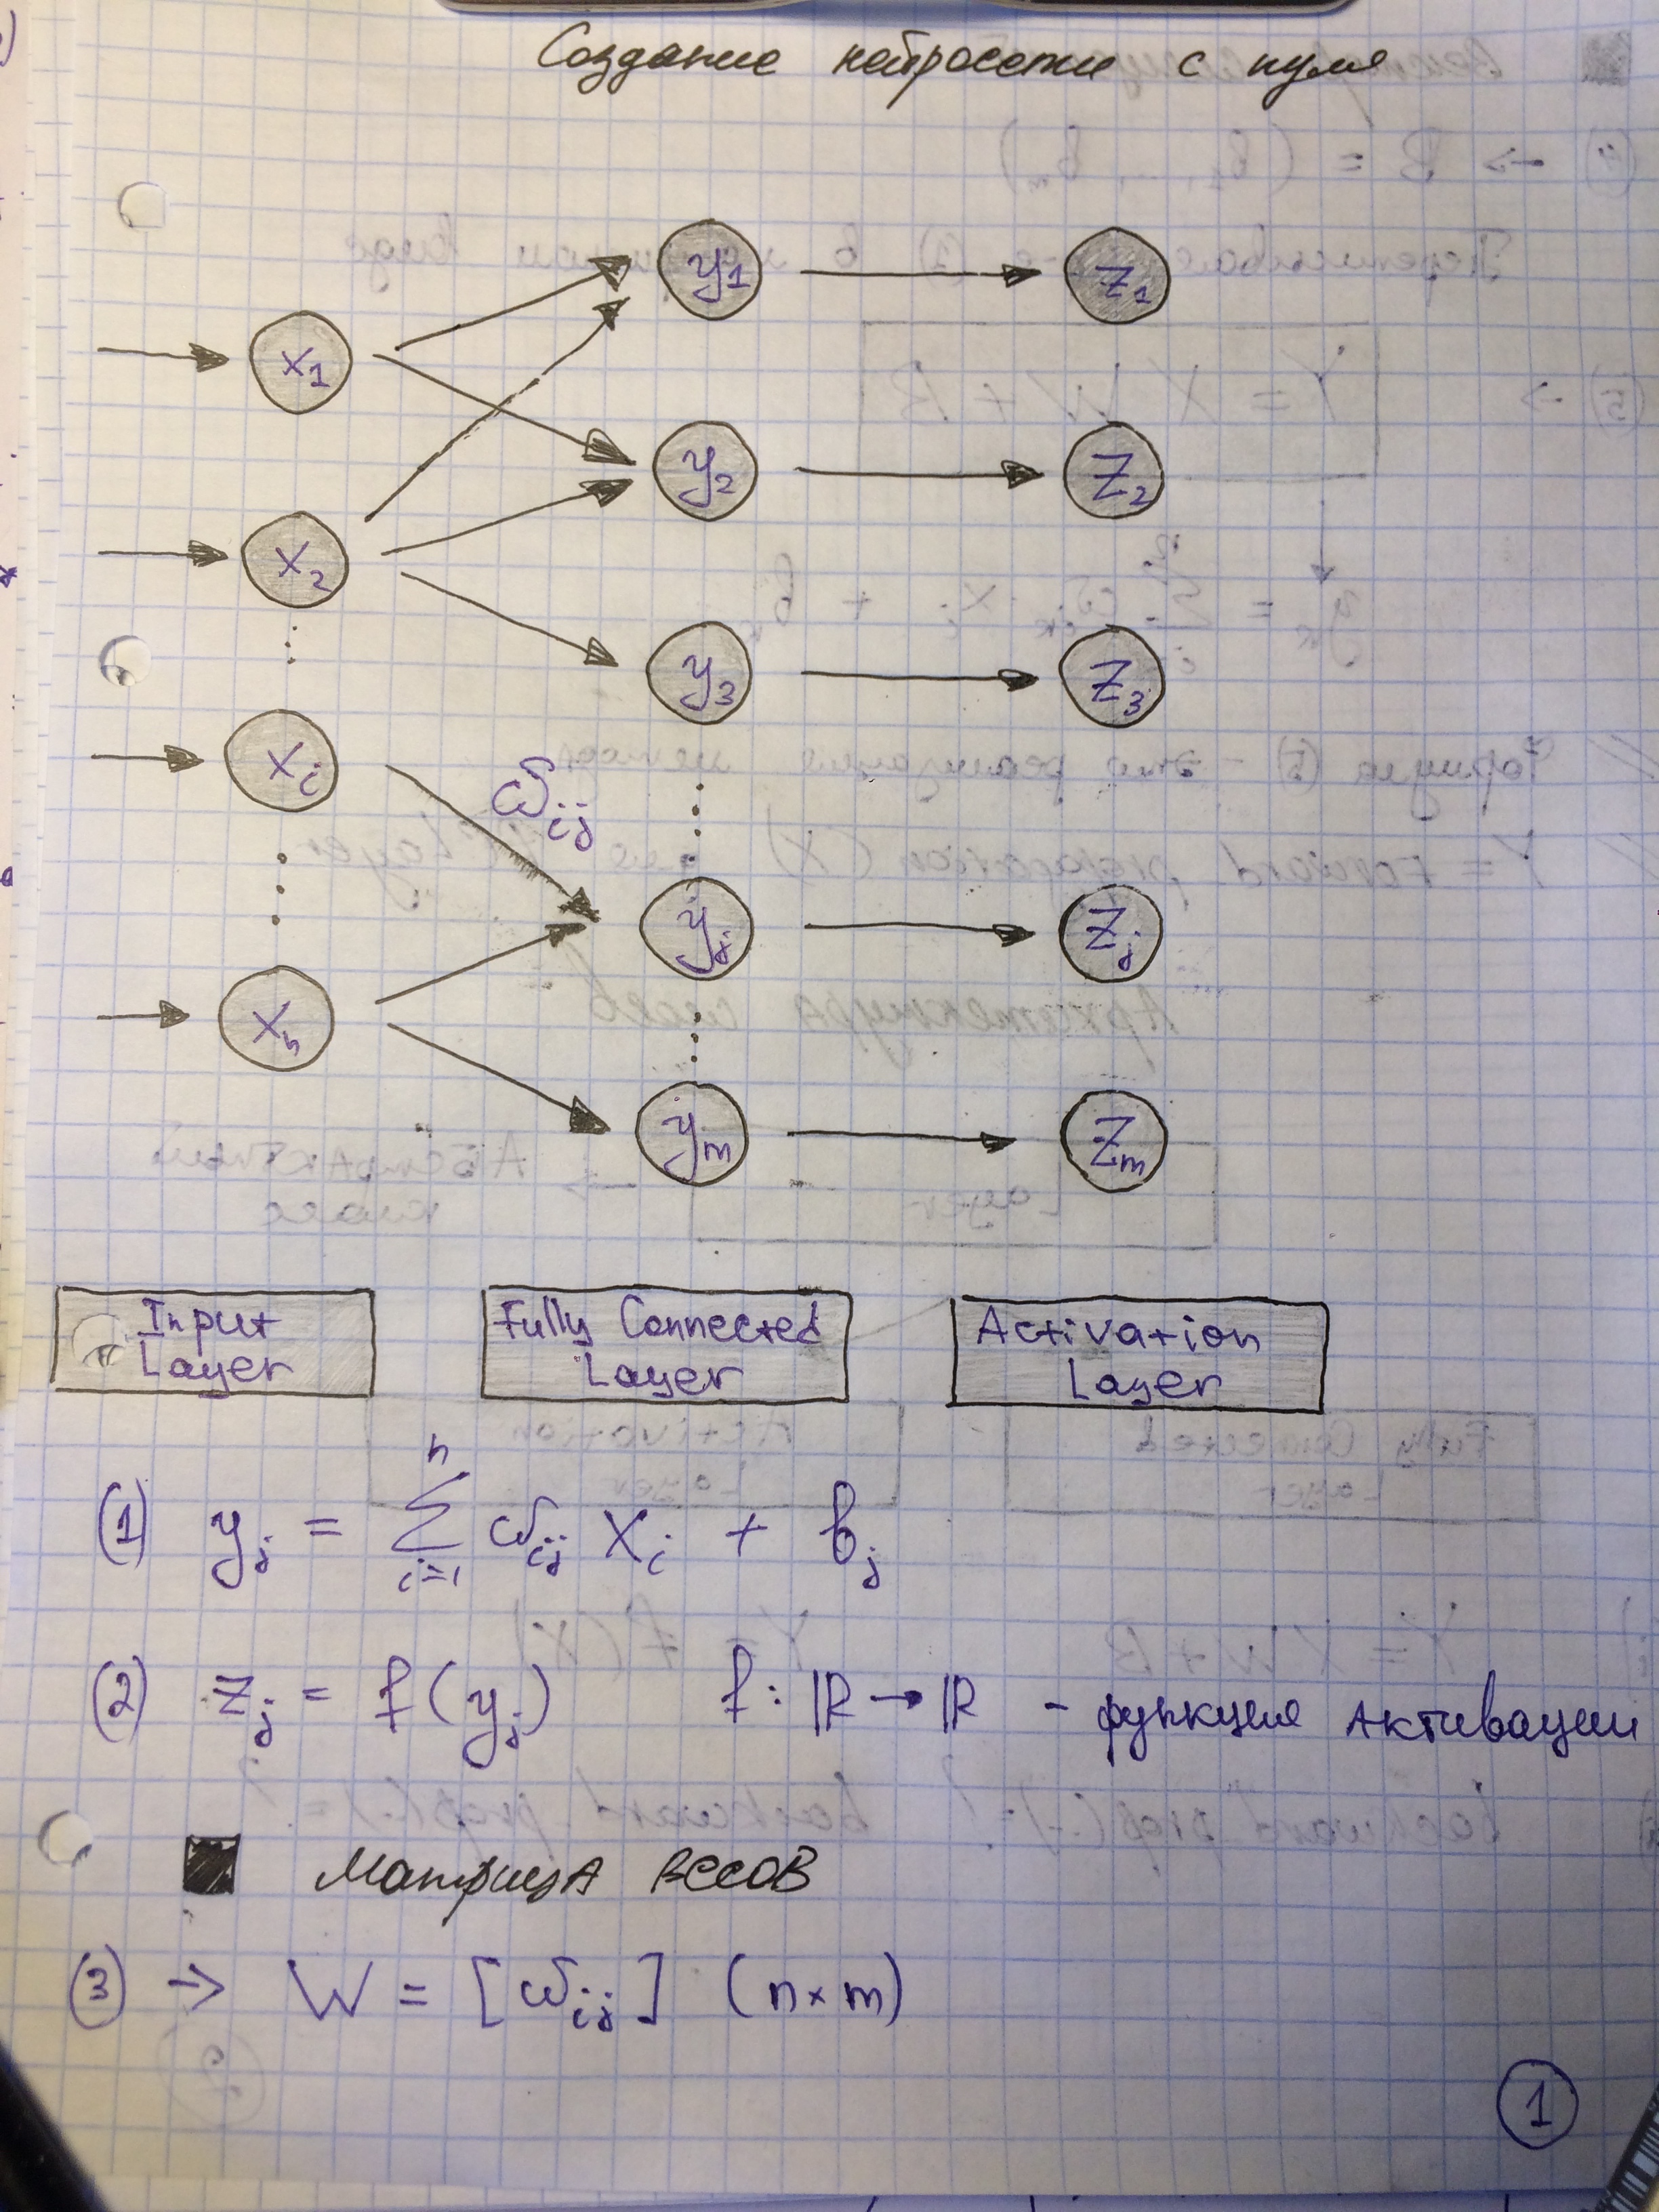 Создание нейросети с нуля
y₁ z₁
x₁
y₂ z₂
x₂
y₃ z₃
xᵢ ωᵢⱼ
yⱼ zⱼ
xₙ
yₘ zₘ
Input Layer
Fully Connected Layer
Activation Layer
(1) yⱼ = ∑ᵢ₌₁ⁿ ωᵢⱼ xᵢ + bⱼ
(2) zⱼ = f(yⱼ) f: ℝ → ℝ - функция активации
■ Матрица весов
(3) → W = [ωᵢⱼ] (n×m)
1